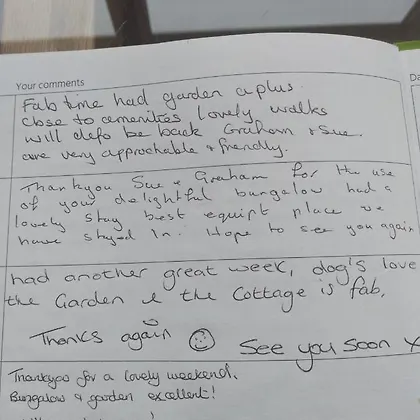 Your comments
Da
Fab time had garden a plus.
Close to amenities lovely walks
will defo be back Graham & Sue.
are very approchable & friendly.
Thankyou Sue & Graham for the use
of your delightful bungalow had a
lovely stay best equipt place we
have stayed in. Hope to see you again
had another great week, dog's love
the Garden & the Cottage is fab,
Thanks again
See you soon x
Thankyou for a lovely weekend.
Bungalow & garden excellent!